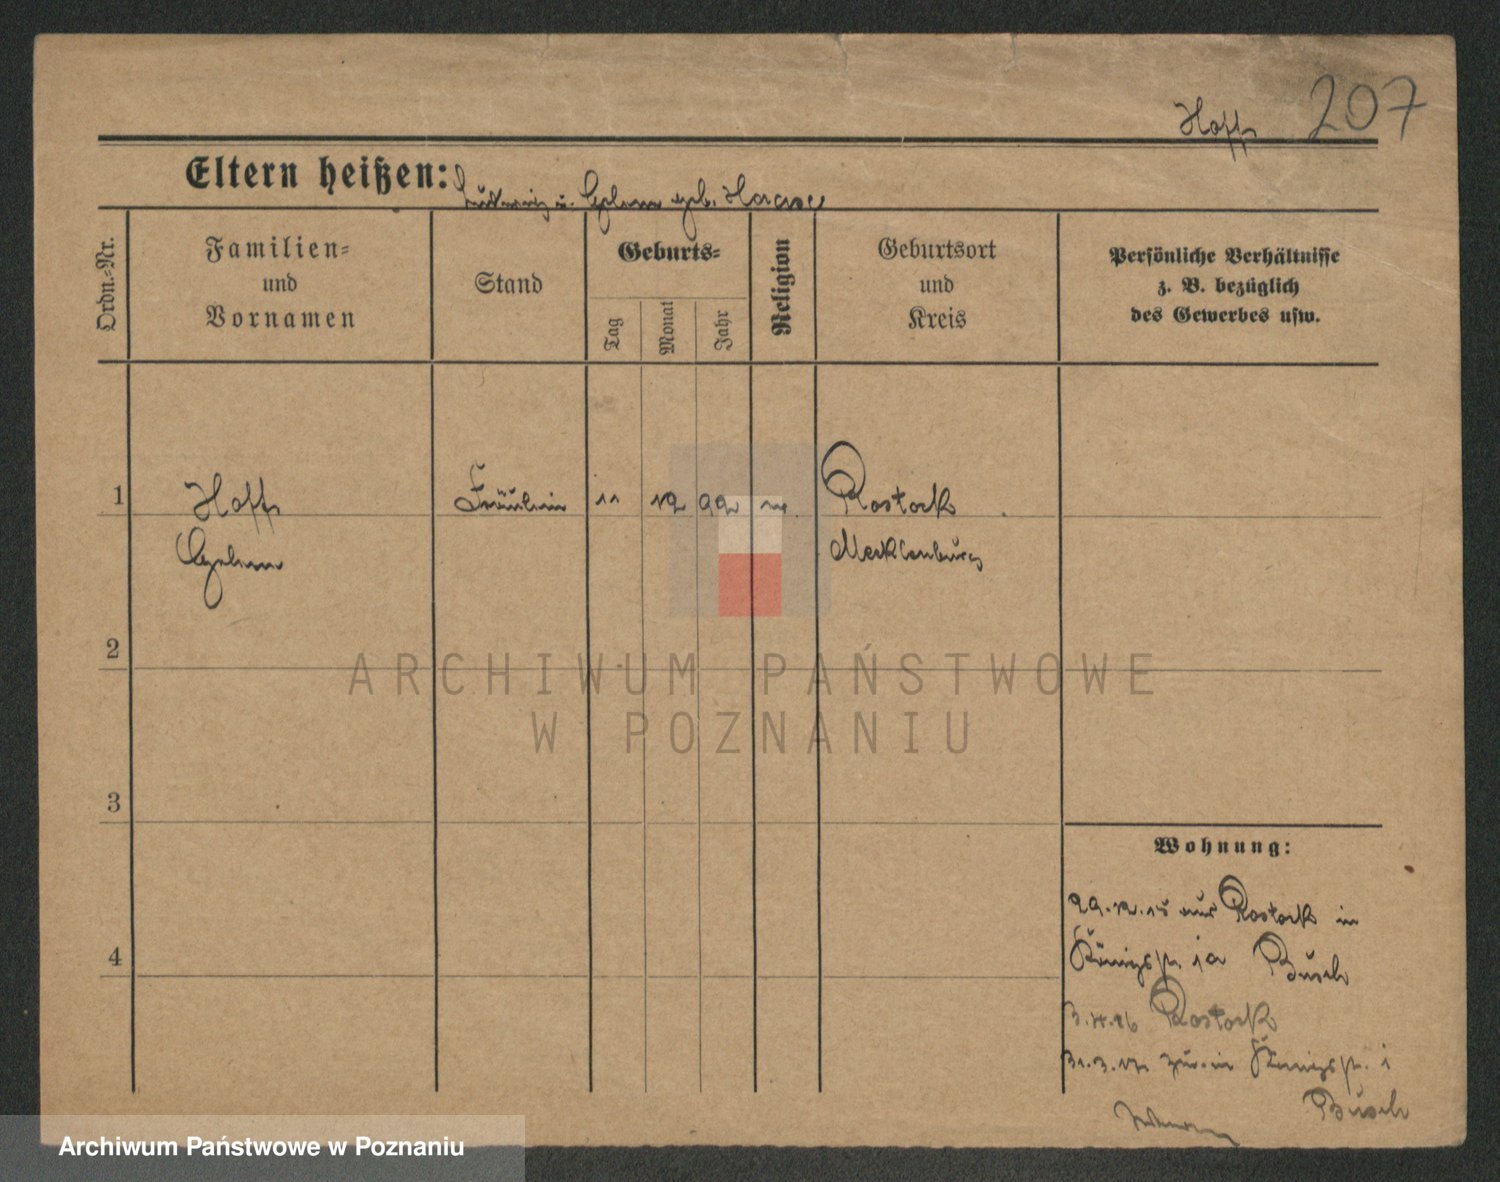 Hoff 207
Eltern heißen: Ludwig u. geb. Haase
Ordn.-Nr.
Familien-
und
Vornamen
Stand
Geburts-
Tag
Monat
Jahr
Religion
Geburtsort
und
Kreis
Persönliche Verhältnisse
z. B. bezüglich
des Gewerbes usw.
1 Hoff Fräulein 11 12 99 Rostock
Mecklenburg
2
3
4
ARCHIWUM PAŃSTWOWE
W POZNANIU
Wohnung:
29.12.15 aus Rostock in
Königspl. 1a Busch
Rostock
31.3.17 in Königspl. 1
Busch
Archiwum Państwowe w Poznaniu